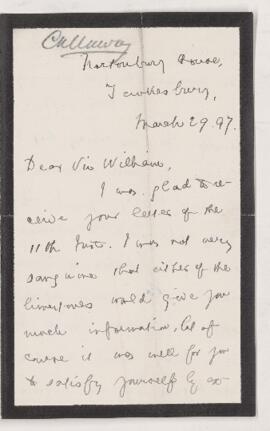 Callaway
House,
Tewkesbury,
March 29. 97.
Dear Sir William,
I was glad to re-
ceive your letter of the
11th Inst. I was not very
sanguine that either of the
limestones would give you
much information, but of
course it was well for you
to satisfy yourself by ex-